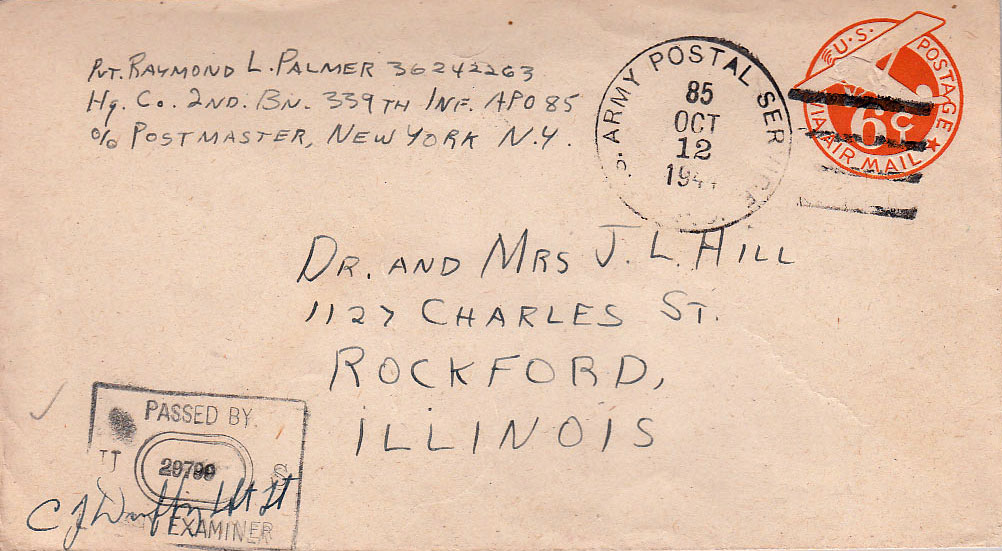 Pvt. Raymond L. Palmer 36242263
Hq. Co. 2nd. Bn. 339th Inf. APO 85
c/o Postmaster, New York N.Y.
ARMY POSTAL SER
85
OCT
12
194
U.S. POSTAGE
6¢
VIA AIR MAIL
Dr. and Mrs J. L. Hill
1127 Charles St.
Rockford,
Illinois
PASSED BY
EXAMINER